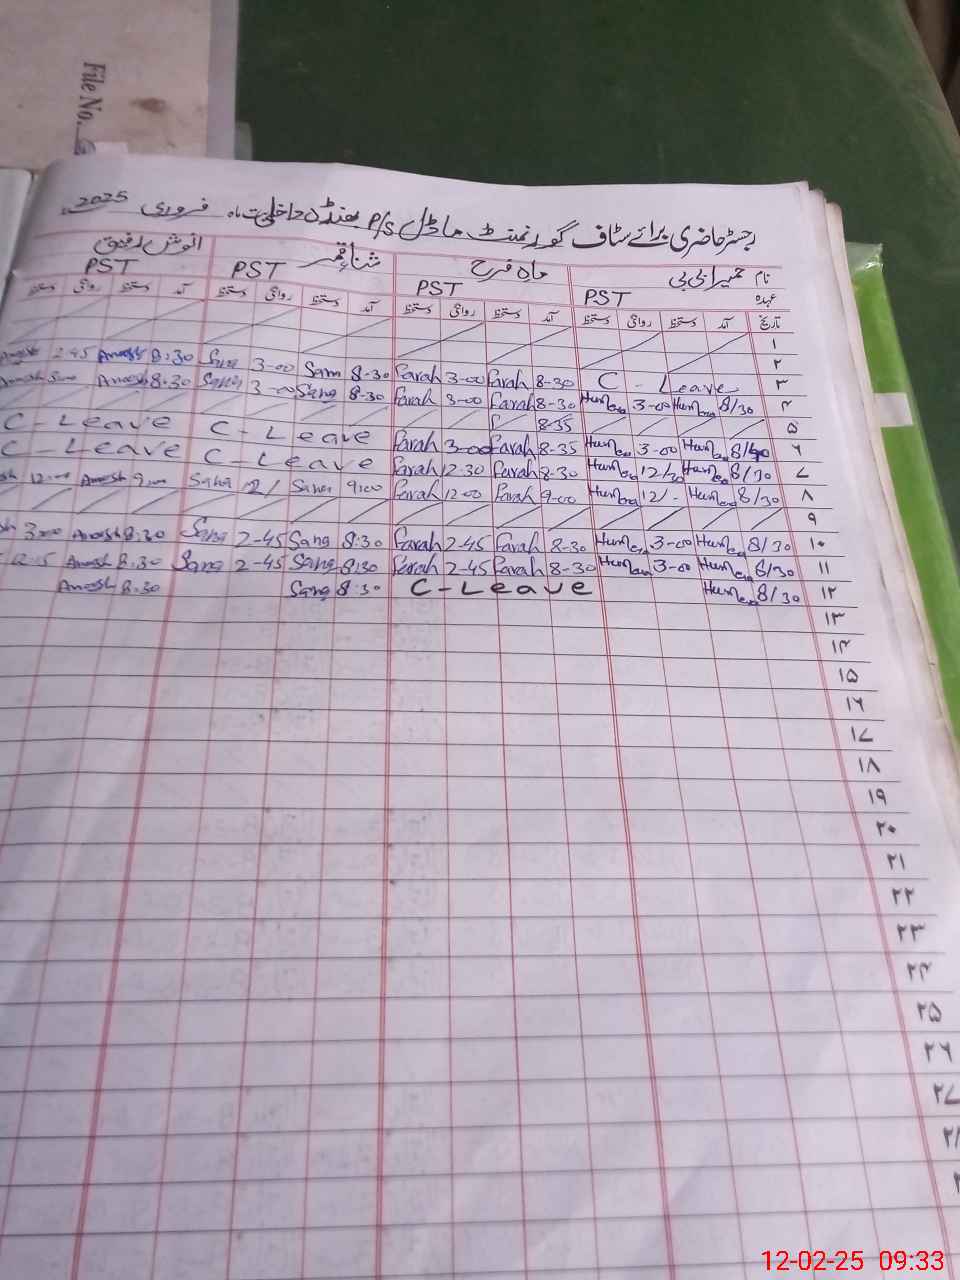 File No.
رجسٹر حاضری برائے سٹاف گورنمنٹ ماڈل P/S بھنڈن داخلی بابت ماہ فروری 2025
نام حمیرا بی بی ماہ فرح ثنا قمر انوش رفیق
عہدہ PST PST PST PST
تاریخ آمد دستخط روانگی دستخط آمد دستخط روانگی دستخط آمد دستخط روانگی دستخط آمد دستخط روانگی دستخط
۱
۲
۳ C - Leave 8-30 Farah 3-00 Farah 8-30 Sana 3-00 Sana 8:30 Anosh 2-45
۴ 8/30 Humera 3-00 Humera 8-30 Farah 3-00 Farah 8-30 Sana 3-00 Sana 8:30 Anosh 3:00 Anosh
۵ 8-35
۶ Humera 3-00 Humera 8-35 Farah 3-00 Farah C - Leave C - Leave
۷ 8/30 Humera 12/30 Humera 8-30 Farah 12-30 Farah C - Leave C - Leave
۸ 8/30 Humera 12/- Humera 9-00 Farah 12-00 Farah 9:00 Sana 12/ Sana 9:00 Anosh 12:00
۹
۱۰ 8/30 Humera 3-00 Humera 8-30 Farah 2-45 Farah 8:30 Sana 2-45 Sana 8:30 Anosh 3:00
۱۱ 8/30 Humera 3-00 Humera 8-30 Farah 2-45 Farah 8:30 Sana 2-45 Sana 8:30 Anosh 12:15
۱۲ 8/30 Humera C-Leave 8:30 Sana 8:30 Anosh
۱۳
۱۴
۱۵
۱۶
۱۷
۱۸
۱۹
۲۰
۲۱
۲۲
۲۳
۲۴
۲۵
۲۶
۲۷
۲۸
12-02-25 09:33